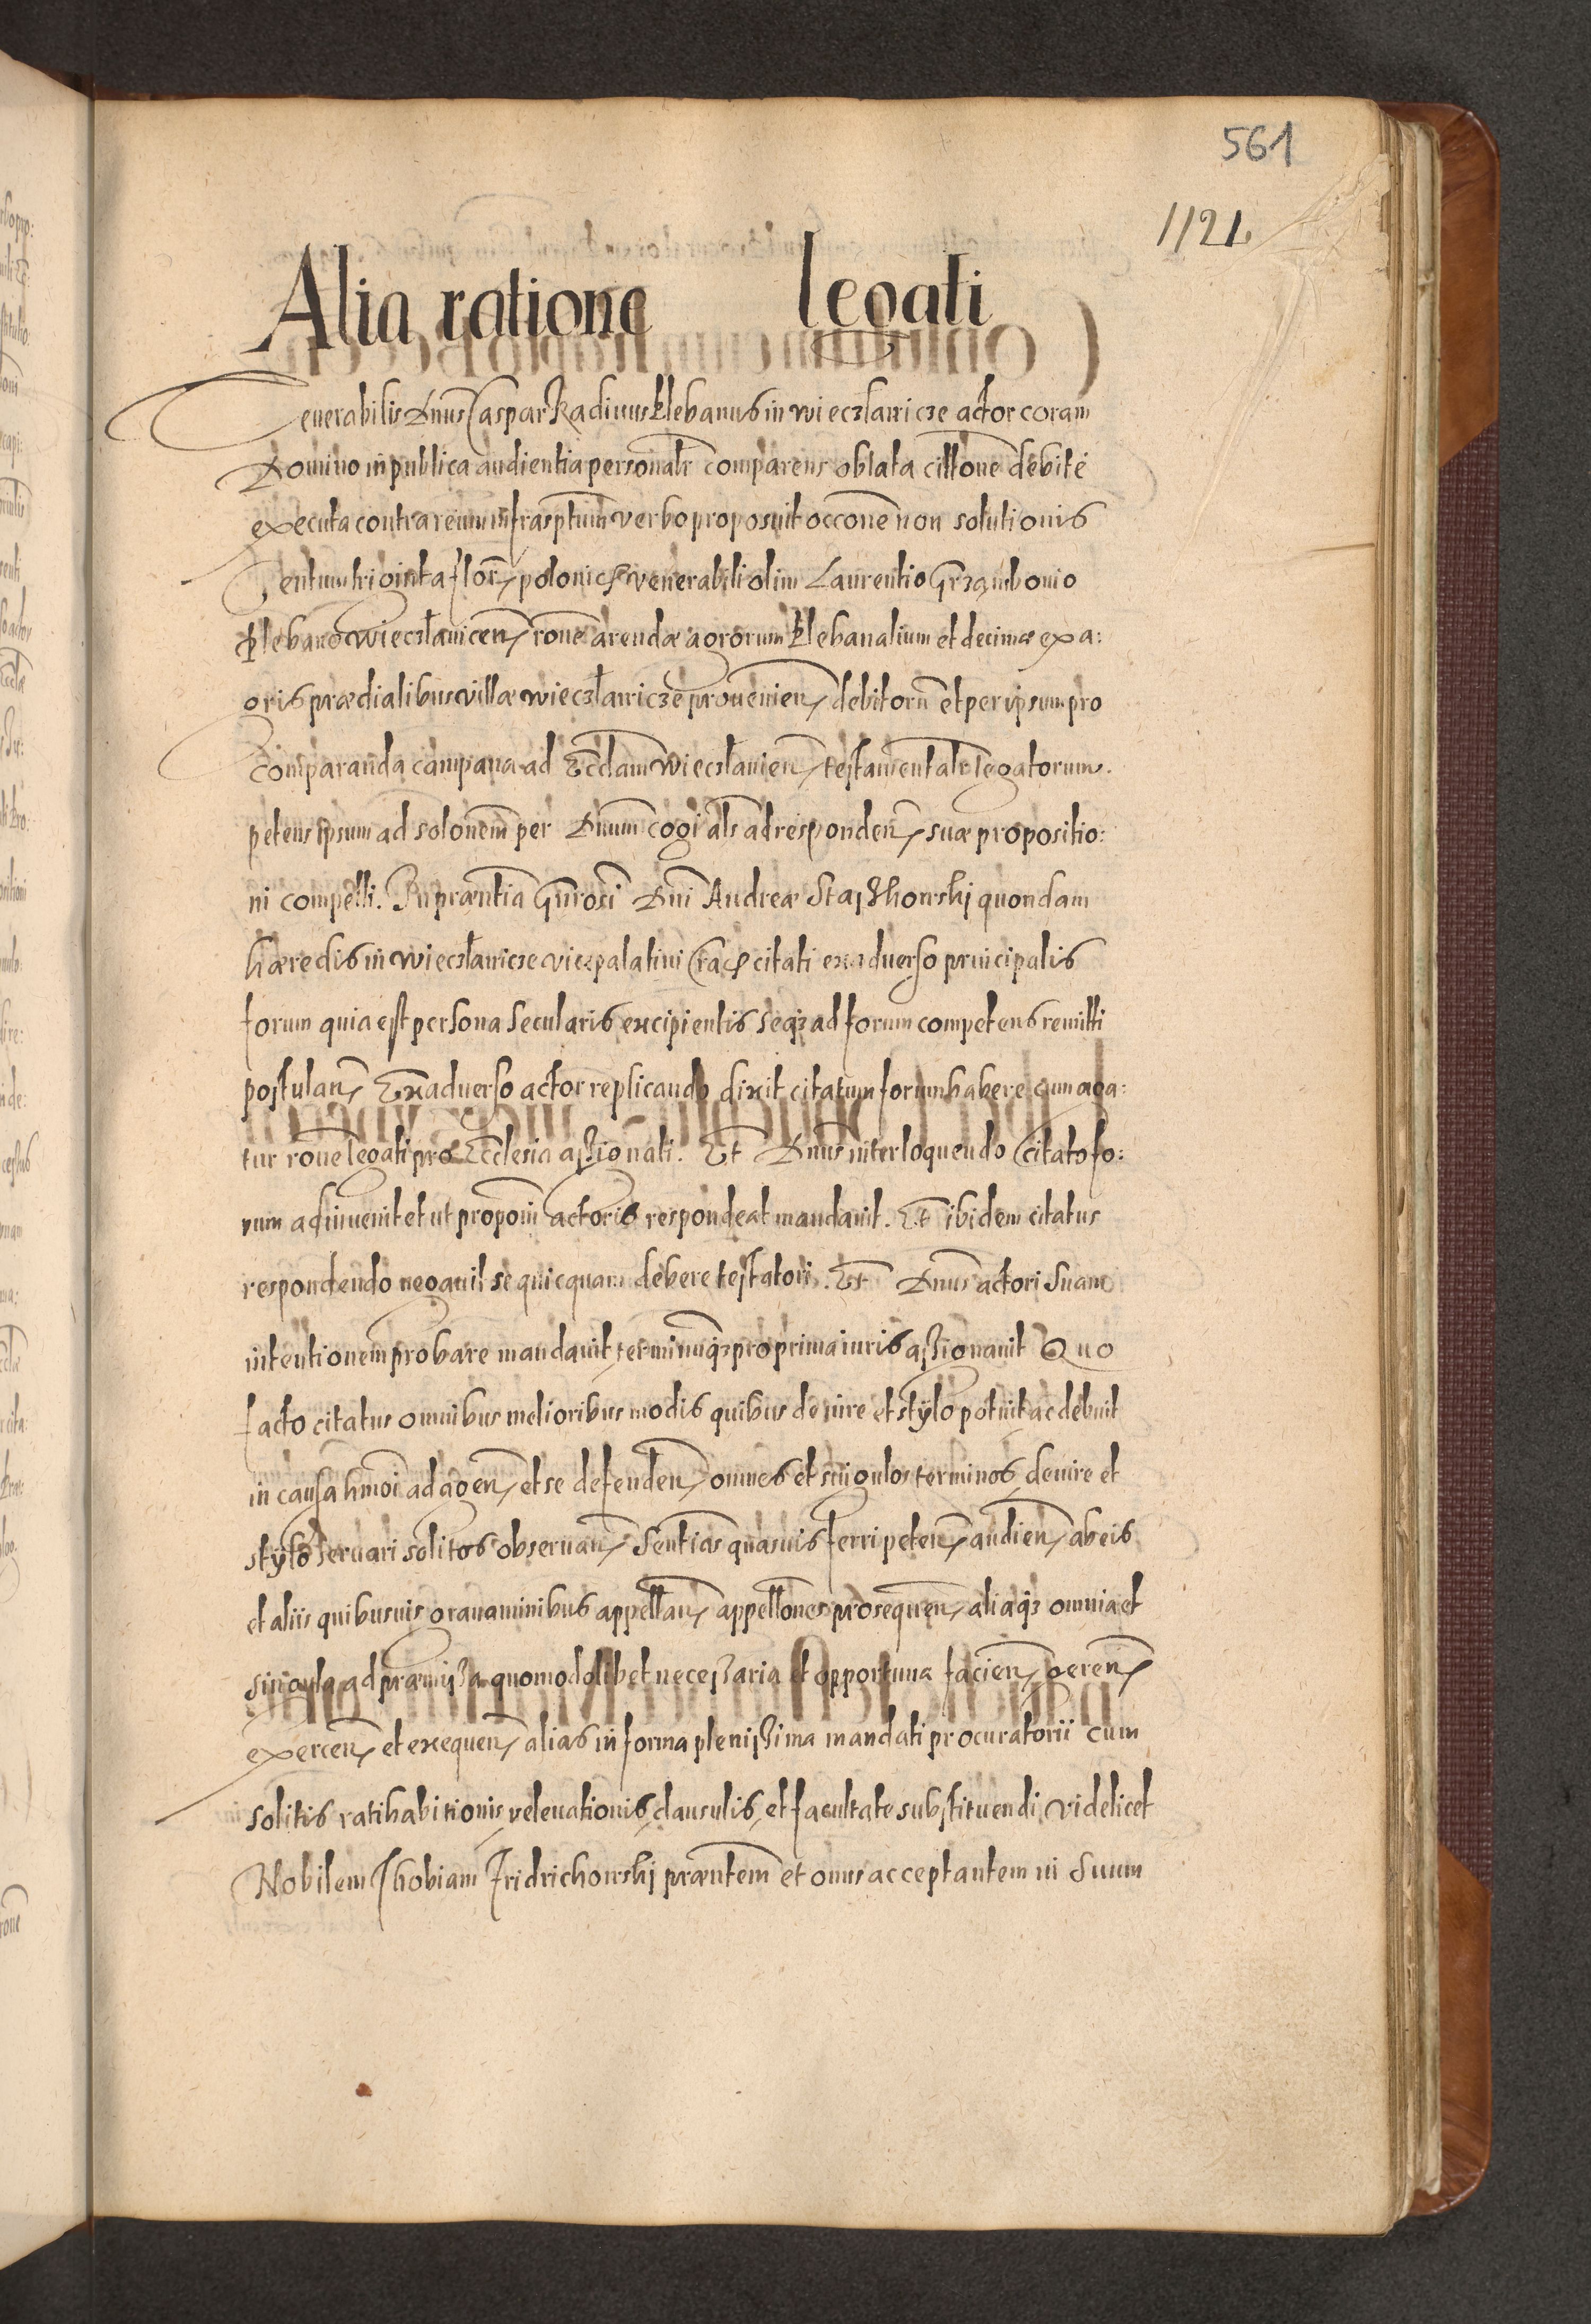 561
1121
Alia ratione legati
Venerabilis Dnus Caspar Radivus Plebanus in Wieczlawicze actor coram
Domino in publica audientia personalr comparens oblata cittone debite
executa contra reum infrasptum verbo proposuit occone non solutionis
Centum triginta flor polonic venerabili olim Laurentio Grzambonio
plebano Wieczlavicen rone arendæ agrorum Plebanalium et decimæ ex a:
gris prædialibus villæ Wieczlawicze prouenien debitorum et per ipsum pro
comparanda campana ad Eccliam Wieczlauien testamentalr legatorum.
petens ipsum ad solonem per Dnum cogi als ad responden suæ propositio:
ni compelli. In præntia Gnrosi Dni Andreæ Stadkowskj quondam
hæredis in Wieczlawicze vicepalatini Crac citati ex aduerso principalis
forum quia est persona secularis excipientis seqz ad forum competens remitti
postulan Ex aduerso actor replicando dixit citatum forum habere cum aga:
tur rone legati pro Ecclesia assignati. Et Dnus interloquendo Citato fo:
rum adinuenit et ut proponi actoris respondeat mandauit. Et ibidem citatus
respondendo negauit se quicquam debere testatori. Et Dnus actori suam
intentionem probare mandauit, terminumqz pro prima iuris assignauit Quo
facto citatus omnibus melioribus modis quibus de iure et stylo potuit ac debuit
in causa hmoi ad agen et se defenden omnes et singulos terminos de iure et
stylo seruari solitos obseruan Sentias quasuis ferri peten audien ab eis
et aliis quibusuis grauaminibus appellan appellones prosequen aliaqz omnia et
singula ad præmissa quomodolibet necessaria et opportuna facien geren
exercen et exequen alias in forma plenissima mandati procuratorii cum
solitis ratihabitionis relevationis clausulis, et facultate substituendi videlicet
Nobilem Thobiam Fridrichowskj præntem et onus acceptantem in suum